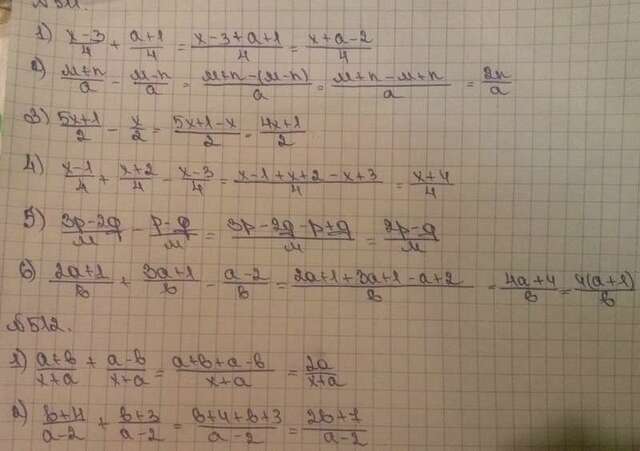 1) (x-3)/4 + (a+1)/4 = (x-3+a+1)/4 = (x+a-2)/4
2) (м+n)/a - (м-n)/a = (м+n-(м-n))/a = (м+n-м+n)/a = 2n/a
3) (5x+1)/2 - x/2 = (5x+1-x)/2 = (4x+1)/2
4) (x-1)/4 + (x+2)/4 - (x-3)/4 = (x-1+x+2-x+3)/4 = (x+4)/4
5) (3p-2q)/м - (p-q)/м = (3p-2q-p+q)/м = (2p-q)/м
6) (2a+1)/в + (3a+1)/в - (a-2)/в = (2a+1+3a+1-a+2)/в = (4a+4)/в = 4(a+1)/в
№512.
1) (a+в)/(x+a) + (a-в)/(x+a) = (a+в+a-в)/(x+a) = 2a/(x+a)
2) (в+4)/(a-2) + (в+3)/(a-2) = (в+4+в+3)/(a-2) = (2в+7)/(a-2)